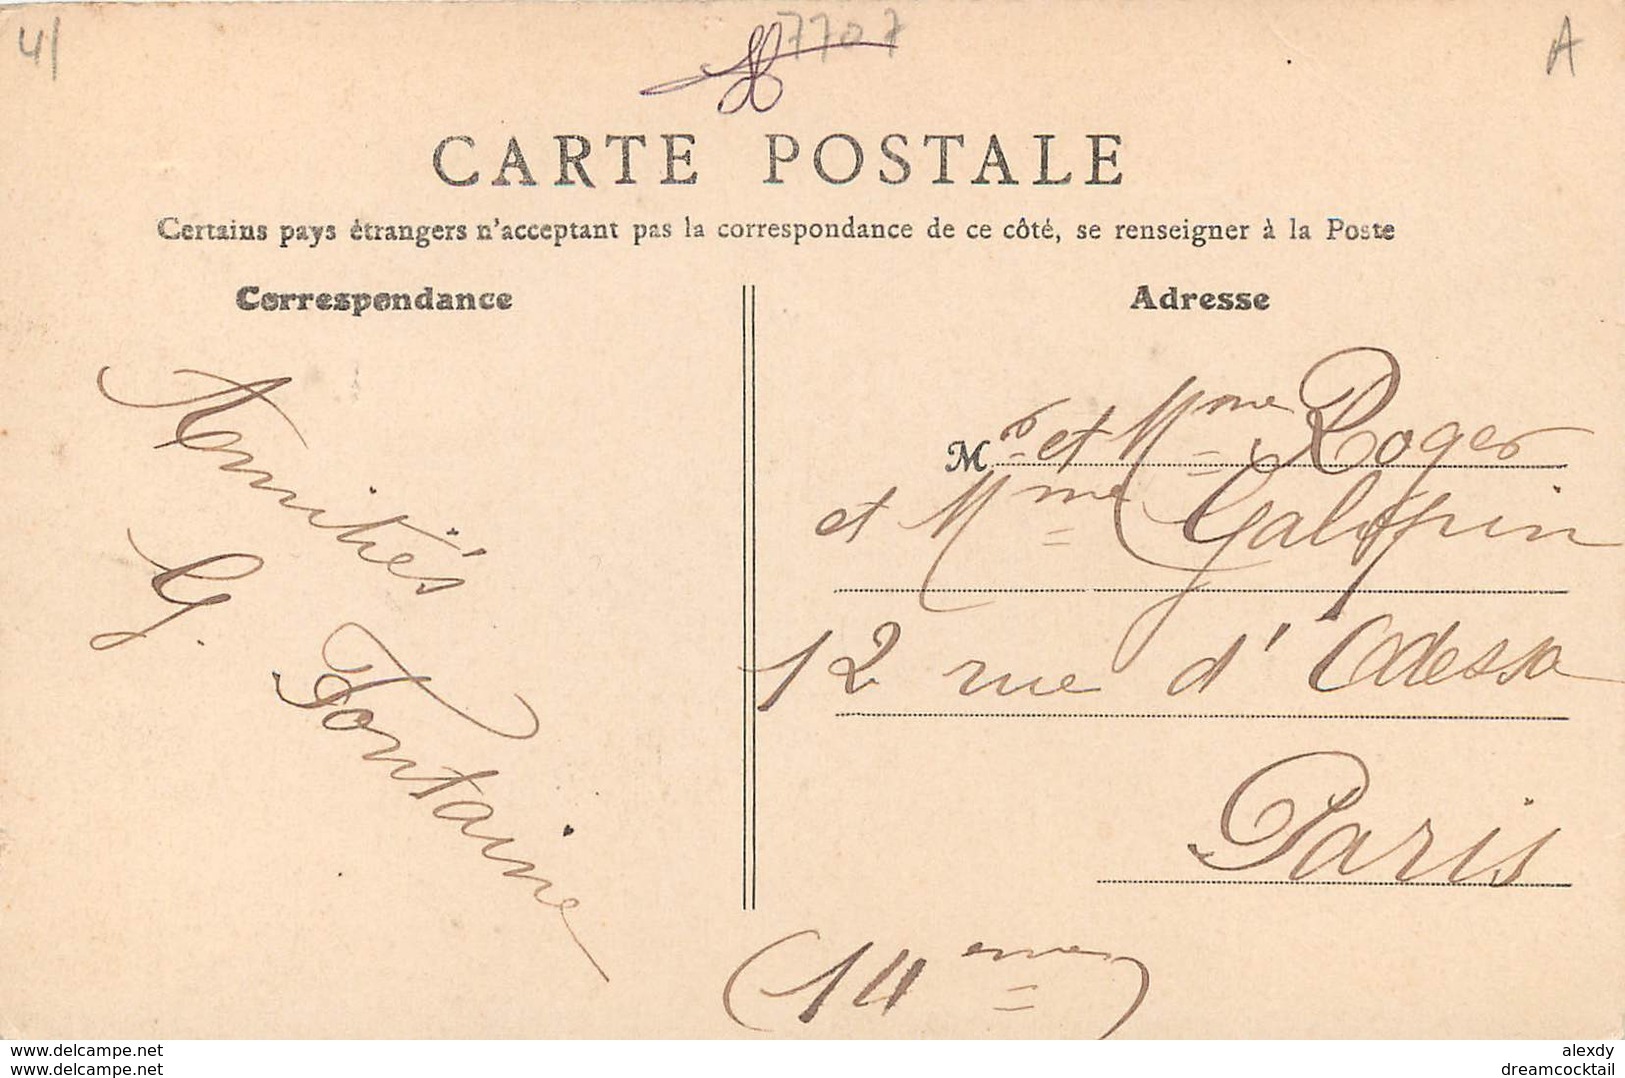 4/
7707
A
CARTE POSTALE
Certains pays étrangers n'acceptant pas la correspondance de ce côté, se renseigner à la Poste
Correspondance
Amitiés
G. Fontaine
Adresse
Mr et Mme Roger
et Mme Galopin
12 rue d'Odessa
Paris
(14eme)
www.delcampe.net
www.delcampe.net
alexdy
dreamcocktail